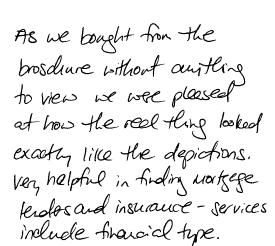 As we bought from the
brochure without anything
to view we were pleased
at how the reel thing looked
exactly like the depictions.
Very helpful in finding mortgage
lenders and insurance - services
include financial type.